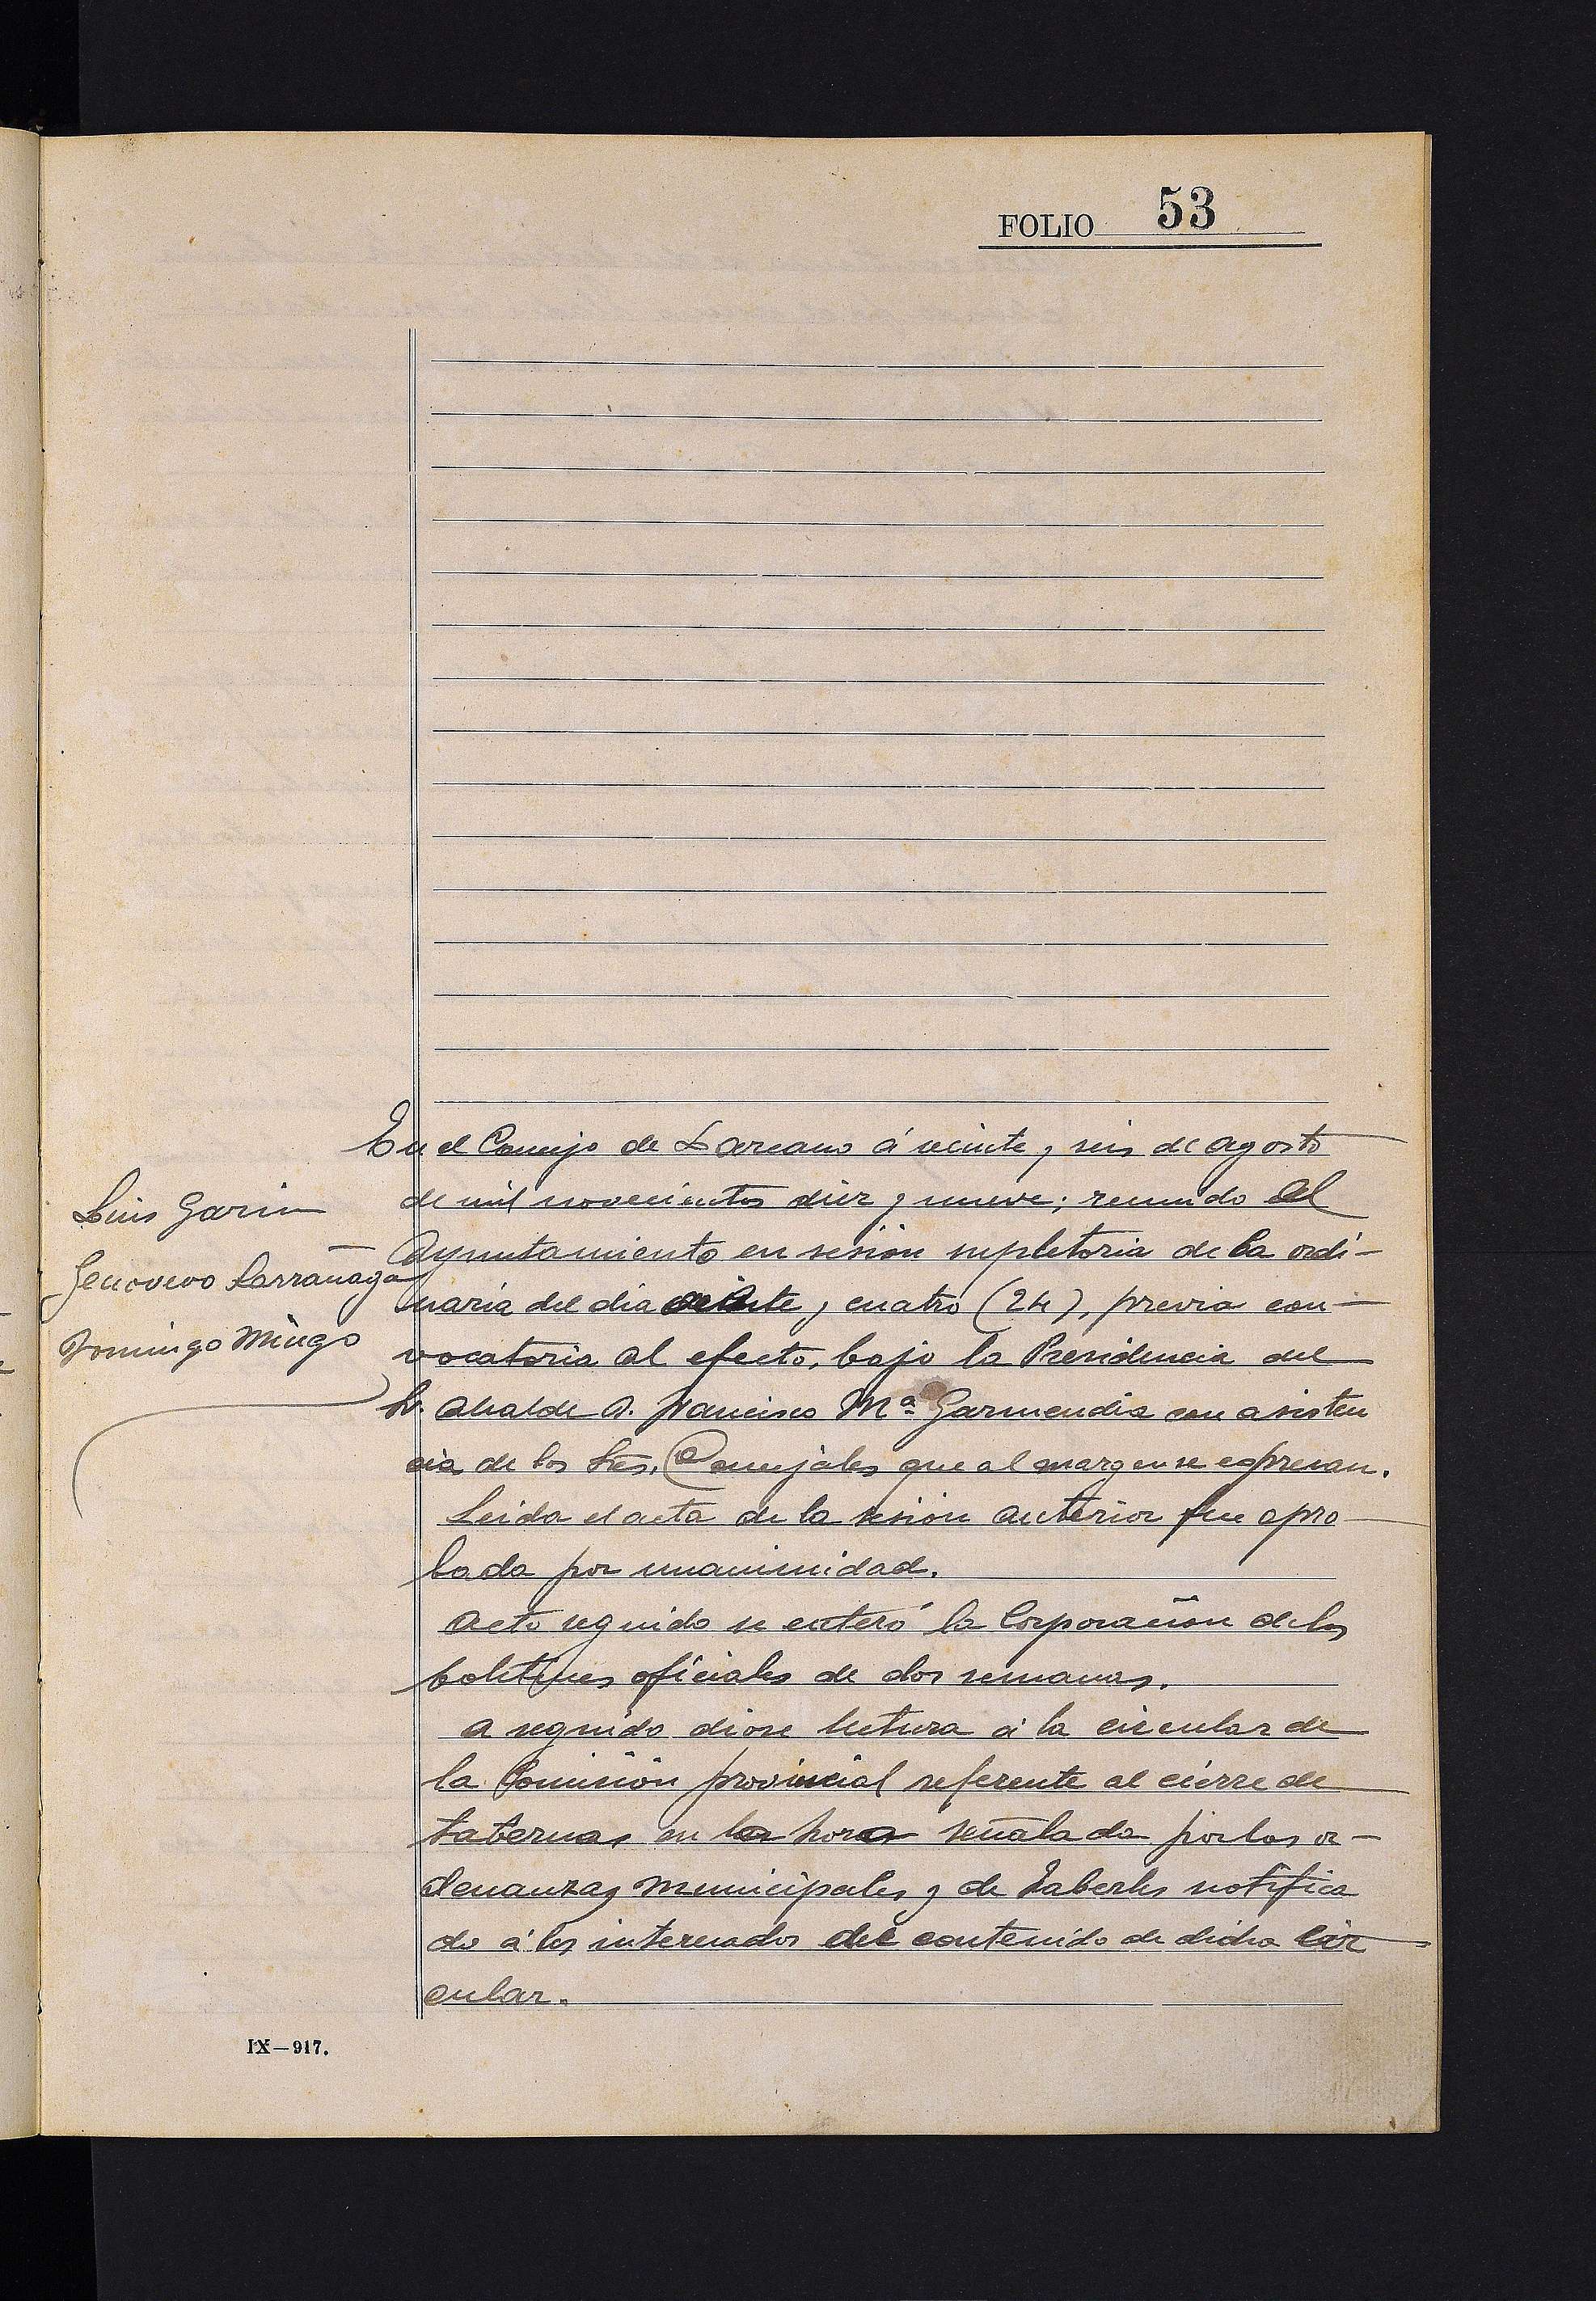 FOLIO 53
En el Concejo de Lazcano á veinte y seis de agosto
de mil novecientos diez y nueve; reunido el
Ayuntamiento en sesión supletoria de la ordi-
naria del dia veinte y cuatro (24), previa con-
vocatoria al efecto, bajo la Presidencia del
Sr. Alcalde D. Francisco Mª Garmendia con asisten
cia de los Sres. Concejales que al margen se expresan.
Luis Garin
Genovevo Larrañaga
Domingo Mingo
Leida el acta de la sesión anterior fue apro
bada por unanimidad.
Acto seguido se enteró la Corporación de los
boletines oficiales de dos semanas.
A seguido diose lectura á la circular de
la Comisión provincial referente al cierre de
tabernas en la hora señalada por las or-
denanzas municipales y de haberles notifica
do á los interesados del contenido de dicha cir
cular.
IX—917.